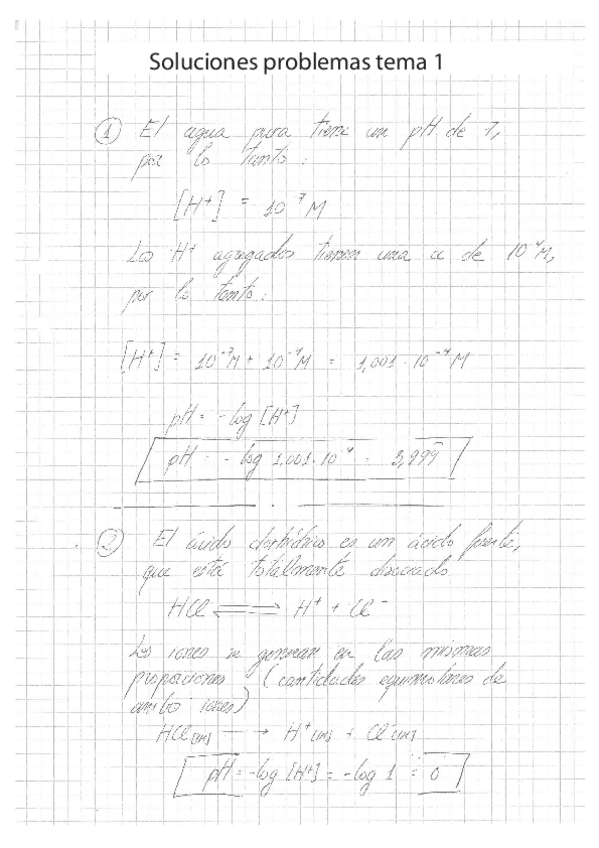 Soluciones problemas tema 1
① El agua pura tiene un pH de 7,
por lo tanto:
[H+] = 10⁻⁷ M
Los H+ agregados tienen una cc de 10⁻⁴M,
por lo tanto:
[H+] = 10⁻⁷M + 10⁻⁴M = 1,001 · 10⁻⁴ M
pH = -log [H+]
pH = -log 1,001·10⁻⁴ = 3,999
② El ácido clorhídrico es un ácido fuerte,
que está totalmente disociado
HCl ⇌ H+ + Cl⁻
Los iones se generan en las mismas
proporciones (cantidades equimolares de
ambos iones)
HCl (1M) → H+ (1M) + Cl⁻ (1M)
pH = -log [H+] = -log 1 = 0